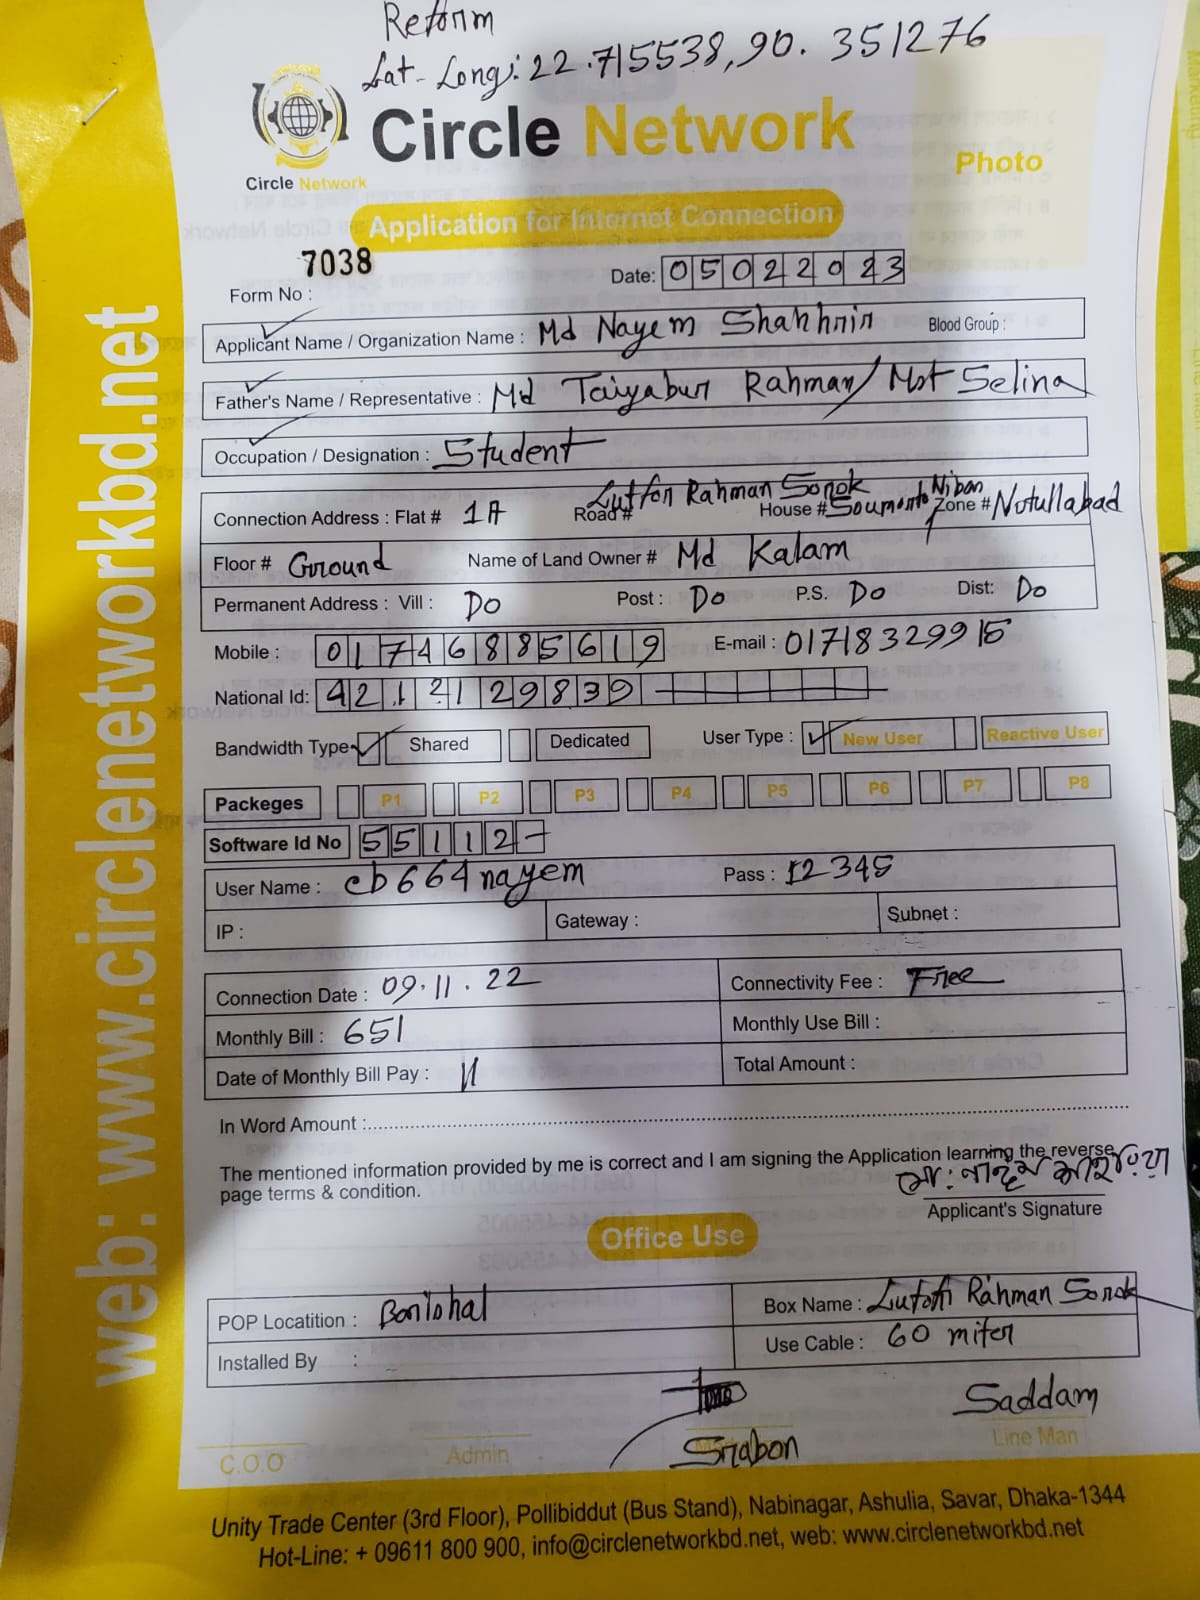 Reform
Lat- Long: 22.715538,90.351276
Circle Network
Circle Network
Photo
Application for Internet Connection
7038
Form No :
Date: 05022023
Applicant Name / Organization Name : Md Nayem Shahhrir Blood Group :
Father's Name / Representative : Md Taiyabur Rahman/ Mst Selina
Occupation / Designation : Student
Connection Address : Flat # 1A Road # Lutfor Rahman Sorok House # Soumonto Niban Zone # Notullabad
Floor # Ground Name of Land Owner # Md Kalam
Permanent Address : Vill : Do Post : Do P.S. Do Dist: Do
Mobile : 01746885619 E-mail : 01718329915
National Id: 4212129839
Bandwidth Type Shared Dedicated User Type : New User Reactive User
Packeges P1 P2 P3 P4 P5 P6 P7 P8
Software Id No 55112-
User Name : cb664nayem Pass : 12345
IP : Gateway : Subnet :
Connection Date : 09.11.22 Connectivity Fee : Free
Monthly Bill : 651 Monthly Use Bill :
Date of Monthly Bill Pay : 11 Total Amount :
In Word Amount :
The mentioned information provided by me is correct and I am signing the Application learning the reverse
page terms & condition.
Applicant's Signature
Office Use
POP Locatition : Box Name : Rahman Sorok
Installed By : Use Cable : 60 miter
Srabon
Saddam
C.O.O Admin Line Man
Unity Trade Center (3rd Floor), Pollibiddut (Bus Stand), Nabinagar, Ashulia, Savar, Dhaka-1344
Hot-Line: + 09611 800 900, info@circlenetworkbd.net, web: www.circlenetworkbd.net
web: www.circlenetworkbd.net